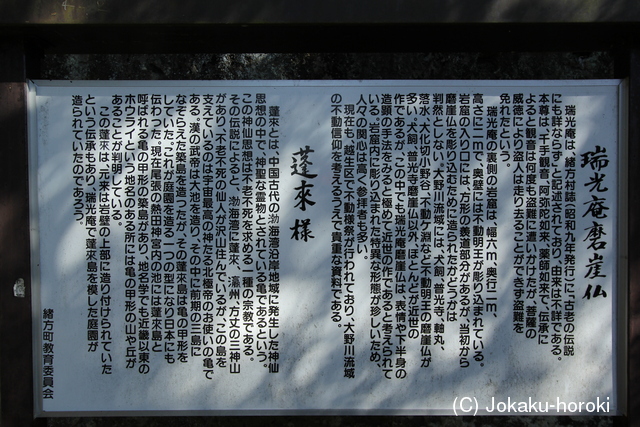 瑞光庵磨崖仏
瑞光庵は、緒方村誌(昭和九年発行)に、「古老の伝説
にも詳ならず」と記述されており、由来は不詳である。
本尊は、千手観音、阿弥陀如来、薬師如来で、伝承に
よると観音は何度も盗難に遭いかけたが、菩薩の
威徳により盗人は走り去ることができず盗難を
免れたという。
瑞光庵の裏側の岩窟は、幅六m、奥行二m、
高さ三・二mで、奥壁には不動明王が彫り込まれている。
岩窟の入り口には、方形の装道部分があるが、当初から
磨崖仏を彫り込むために造られたかどうかは
判然としない。大野川流域には、犬飼、普光寺、軸丸、
落水、大化の小野谷、不動ケ淵など不動明王の磨崖仏が
多い。犬飼、普光寺磨崖仏以外、ほとんどが近世の
作であるが、この中でも瑞光庵磨崖仏は、表情や下半身の
造顕の手法をみると極めて近世の作であると考えられて
いる。岩窟内に彫り込まれた特異な形態が珍しいため、
人々の関心は高く、参拝者も多い。
現在も、越生区で不動様祭が行われており、大野川流域
の不動信仰を考えるうえで貴重な資料である。
蓬来様
蓬来とは、中国古代の渤海湾沿岸地域に発生した神仙
思想の中で、神聖な霊物とされている亀であるという。
この神仙思想は不老不死を求める一種の宗教である。
その伝説によると、渤海湾に蓬来、瀛州、方丈の三神山
があり、不老不死の仙人が沢山住んでいるが、この島を
支えているのは宇宙最高の神なる北極帝のお使いの亀で
ある。漢の武帝は大池を掘り、その中に前期の三島に
なぞらえた築島を造ったが、その蓬来島は亀の甲形を
していた。これが庭園を造る一つの型になり日本にも
伝わった。現在尾張の熱田神宮内の池には蓬来島と
呼ばれる亀の甲形の築島があり、地名学でも近畿以東の
ホウライという地名のある所には亀の甲形の山や丘が
あることが判明している。
この蓬来は、元来は岩壁の上部に造り付けられていた
という伝承もあり、瑞光庵で蓬来島を模した庭園が
造られていたのであろう。
緒方町教育委員会
(C) Jokaku-horoki